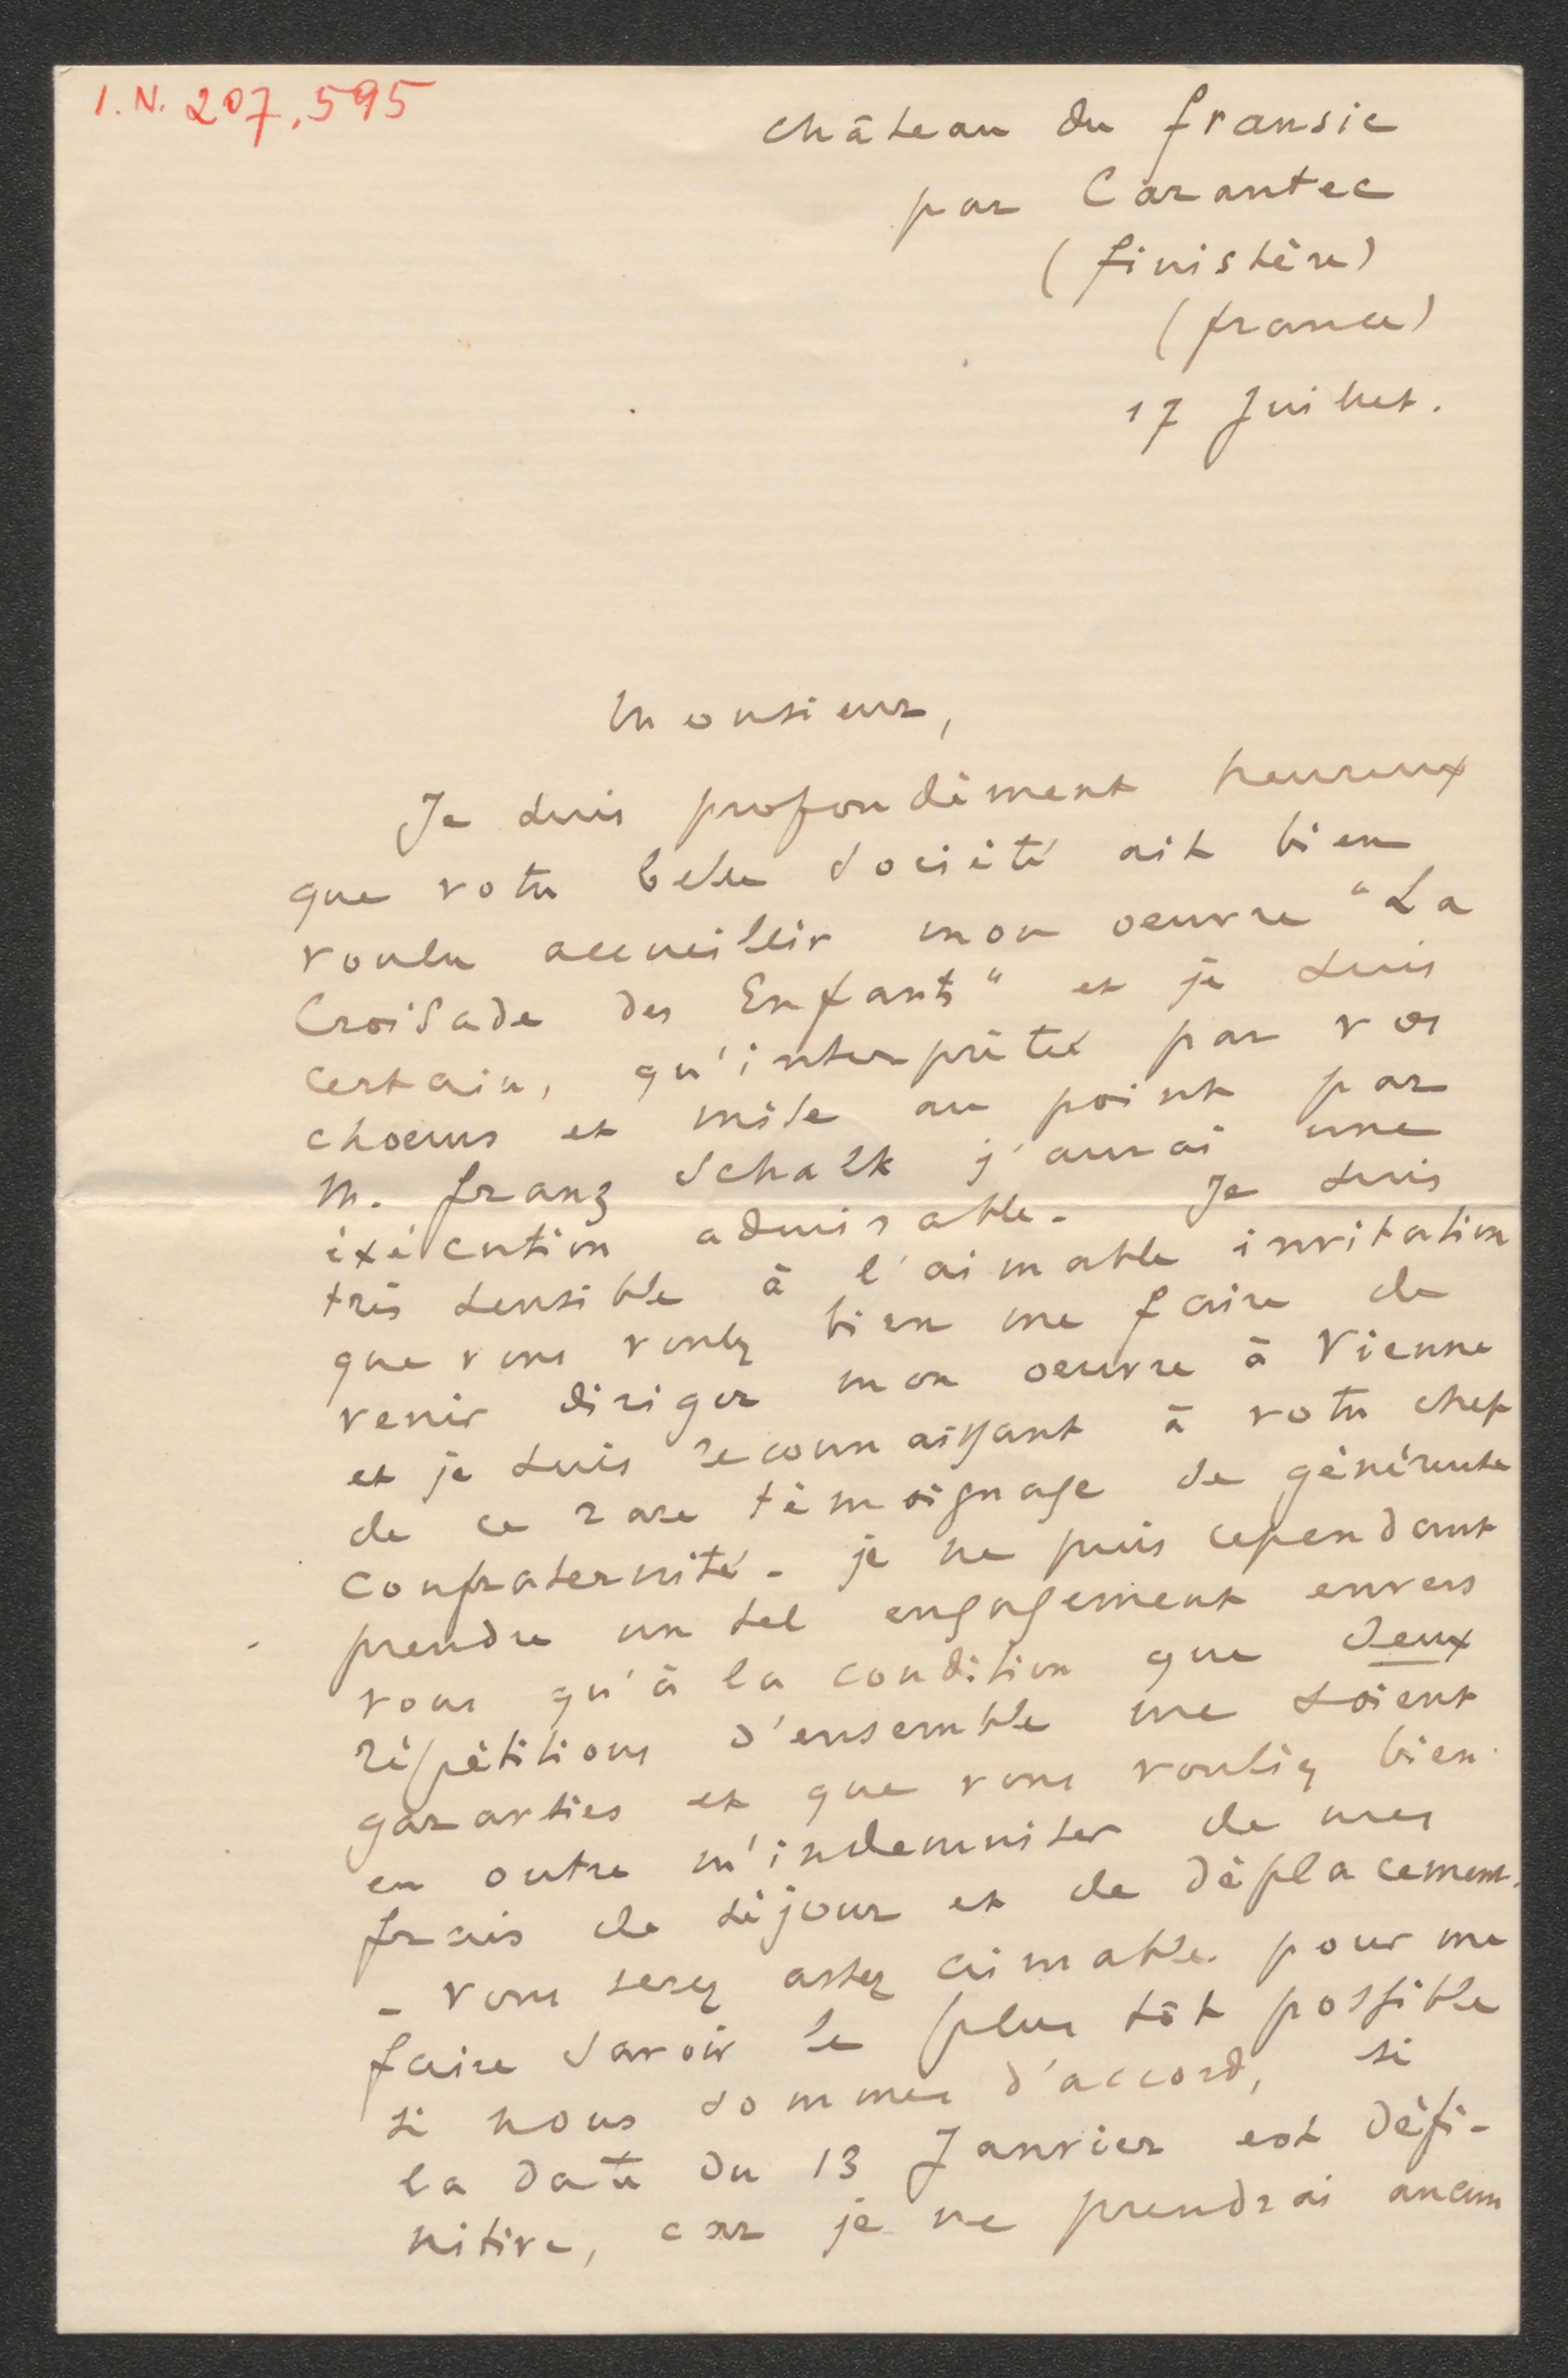 I.N. 207.595
château du fransic
par Carantec
(finistère)
(france)
17 Juillet.
Monsieur,
Je suis profondément heureux
que votre belle société ait bien
voulu accueillir mon oeuvre "La
Croisade des Enfants" et je suis
certain, qu'interprétée par vos
choeurs et mise au point par
M. franz Schalk j'aurai une
éxécution admirable. Je suis
très sensible à l'aimable invitation
que vous voulez bien me faire de
venir diriger mon oeuvre à Vienne
et je suis reconnaissant à votre chef
de ce rare témoignage de généreuse
confraternité. je ne puis cependant
prendre un tel engagement envers
vous qu'à la condition que deux
répétitions d'ensemble me soient
garanties et que vous vouliez bien
en outre m'indemniser de mes
frais de séjour et de déplacement.
- Vous serez assez aimable pour me
faire savoir le plus tôt possible
si nous sommes d'accord, si
la date du 13 Janvier est défi-
nitive, car je ne prendrai aucun